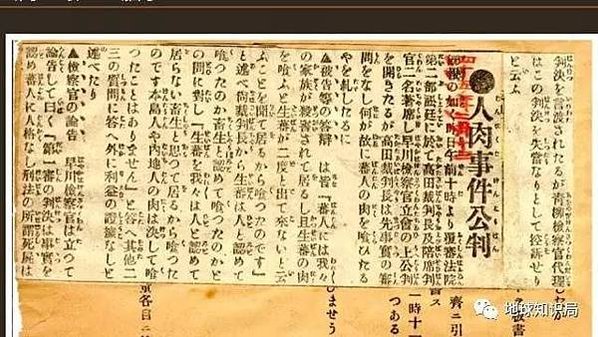 判決を言渡されたるが青柳檢察官代理
はこの判決を失當なりとして控訴せり
と云ふ
人肉事件公判
の如く昨日午前十時より覆審法院
第二部法廷に於て高田裁判長及陪席判
官二名著席し早川檢察官立會の上公判
を開きたるが高田裁判長は先事實の審
問をなし何が故に蕃人の肉を喰ひたる
やを糺したるに
▲被告等の答辯 は皆『蕃人は我々
の家族が殺害されて居るし且生蕃の肉
を喰ふと生蕃が二度と出て來ないと云
ふことを聞て居るから喰つたのです』
と述べ尚裁判長から生蕃は人と認めて
喰つたのか畜生と認めて喰つたのかと
の間に對し『生蕃を我々は人と認めて
居らない畜生と思つて居るから喰つた
のです本島人や内地人の肉は決して喰
つたことはありません』と答へ其他二
三の質問に答へ外に利益の證據なしと
述べたり
▲檢察官の論告 早川檢察官は立つて
論告して曰く『第一審の判決は事實を
認め蕃人に人格なし刑法の所謂死屍は
齊に引
一時十
つある
しませう
地球知识局